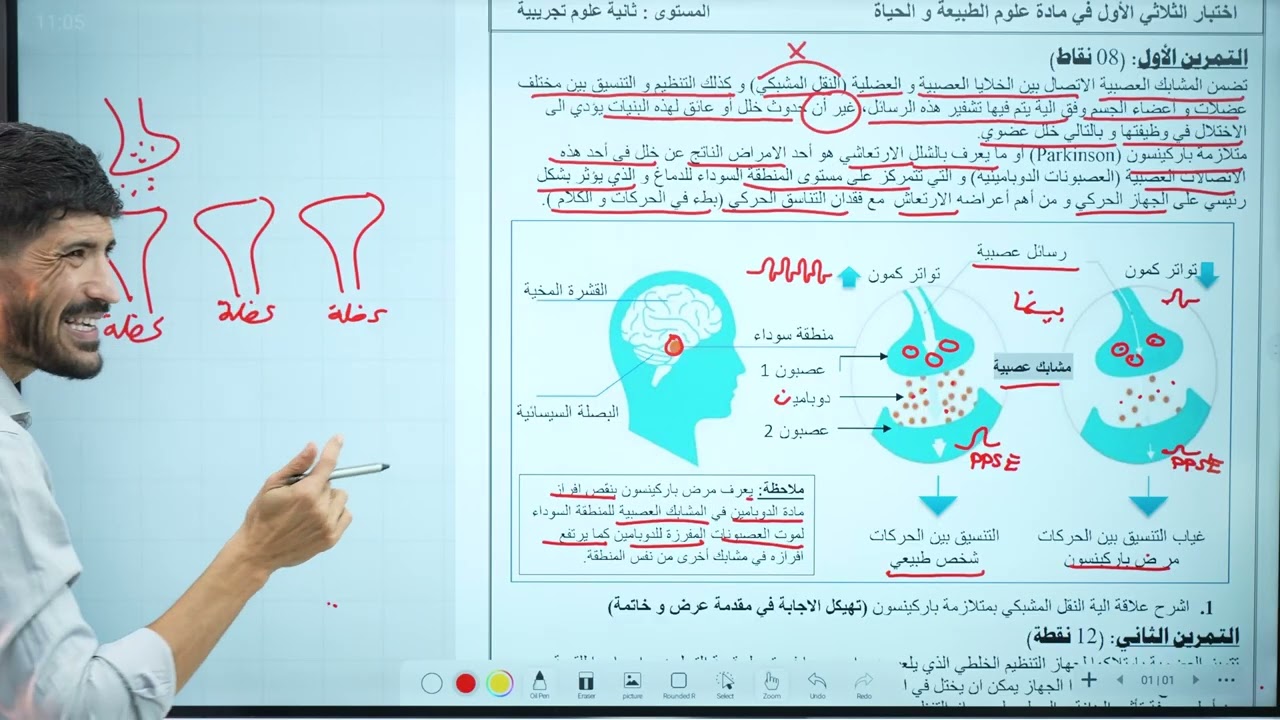 11:05
اختبار الثلاثي الأول في مادة علوم الطبيعة و الحياة
المستوى : ثانية علوم تجريبية
التمرين الأول: (08 نقاط)
تضمن المشابك العصبية الاتصال بين الخلايا العصبية و العضلية (النقل المشبكي) و كذلك التنظيم و التنسيق بين مختلف
عضلات و أعضاء الجسم وفق الية يتم فيها تشفير هذه الرسائل، غير أن حدوث خلل أو عائق لهذه البنيات يؤدي الى
الاختلال في وظيفتها و بالتالي خلل عضوي.
متلازمة باركينسون (Parkinson) أو ما يعرف بالشلل الارتعاشي هو أحد الامراض الناتج عن خلل في أحد هذه
الاتصالات العصبية (العصبونات الدوبامينية) و التي تتمركز على مستوى المنطقة السوداء للدماغ و الذي يؤثر بشكل
رئيسي على الجهاز الحركي و من أهم أعراضه الارتعاش مع فقدان التناسق الحركي (بطء في الحركات و الكلام ).
رسائل عصبية
تواتر كمون
تواتر كمون
بينما
القشرة المخية
منطقة سوداء
عصبون 1
دوبامين
عصبون 2
البصلة السيسائية
مشابك عصبية
PPSE
PPSE
عضلة
عضلة
عضلة
ملاحظة: يعرف مرض باركينسون بنقص افراز
مادة الدوبامين في المشابك العصبية للمنطقة السوداء
لموت العصبونات المفرزة للدوبامين كما يرتفع
افرازه في مشابك أخرى من نفس المنطقة.
التنسيق بين الحركات
شخص طبيعي
غياب التنسيق بين الحركات
مرض باركينسون
1. اشرح علاقة الية النقل المشبكي بمتلازمة باركينسون (تهيكل الاجابة في مقدمة عرض و خاتمة)
التمرين الثاني: (12 نقطة)
جهاز التنظيم الخلطي الذي
الجهاز يمكن ان يختل في
Oil Pen
Eraser
picture
Rounded R
Select
Zoom
Undo
Redo
01|01